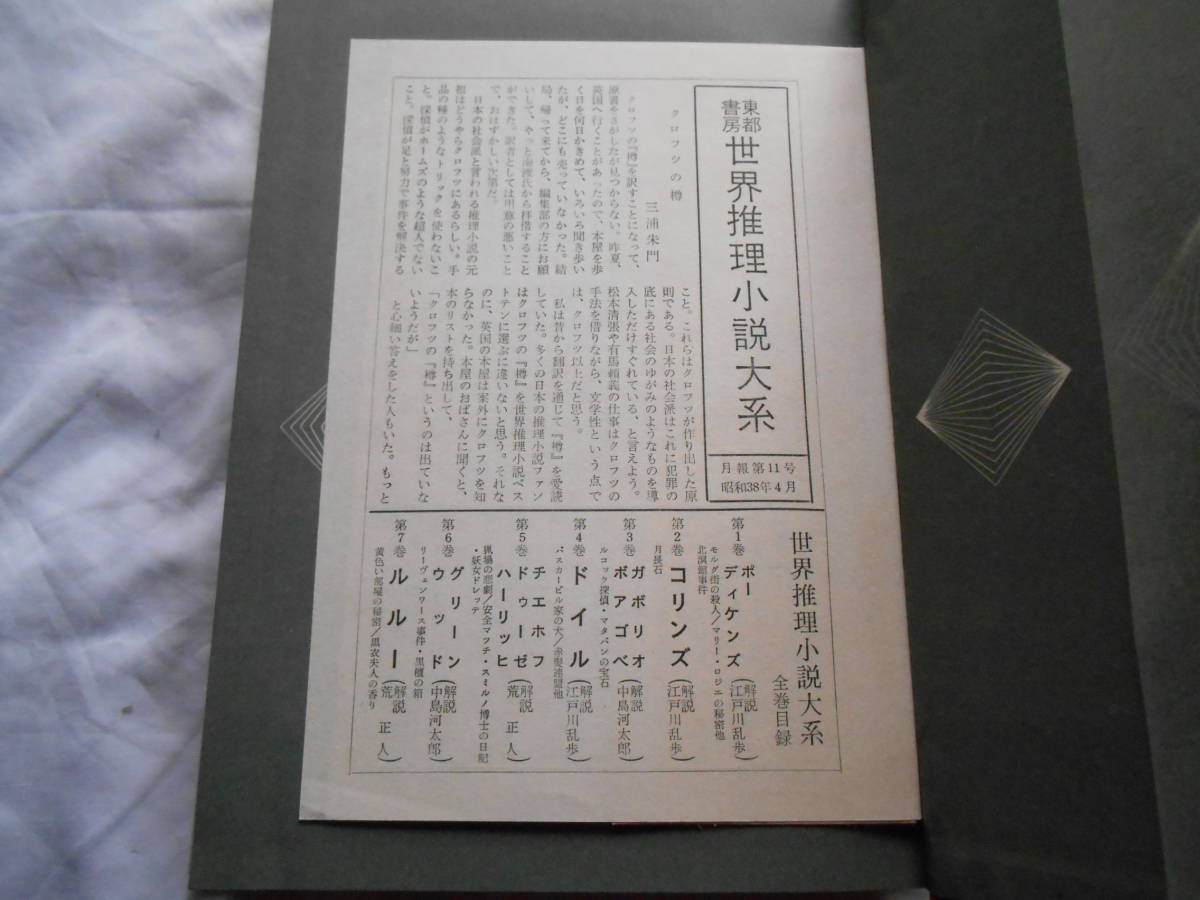 東都書房
世界推理小説大系
月報第11号
昭和38年4月
クロフツの樽
三浦朱門
クロフツの『樽』を訳すことになって、
原書をさがしたが見つからない。昨夏、
英国へ行くことがあったので、本屋を歩
く日を何日かきめて、いろいろ聞き歩い
たが、どこにも売っていなかった。結
局、帰って来てから、編集部の方にお願
いして、やっと
氏から拝借すること
ができた。訳者としては用意の悪いこと
で、おはずかしい次第だ。
日本の社会派と言われる推理小説の元
祖はどうやらクロフツにあるらしい。手
品の種のようなトリックを使わないこ
と。探偵がホームズのような超人でない
こと。探偵が足と努力で事件を解決する
こと。これらはクロフツが作り出した原
則である。日本の社会派はこれに犯罪の
底にある社会のゆがみのようなものを導
入しただけすぐれている、と言えよう。
松本清張や有馬頼義の仕事はクロフツの
手法を借りながら、文学性という点で
は、クロフツ以上だと思う。
私は昔から翻訳を通じて『樽』を愛読
していた。多くの日本の推理小説ファン
はクロフツの『樽』を世界推理小説ベス
トテンに選ぶに違いないと思う。それな
のに、英国の本屋は案外にクロフツを知
らなかった。本屋のおばさんに聞くと、
本のリストを持ち出して、
「クロフツの『樽』というのは出ていな
いようだが」
と心細い答えをした人もいた。もっと
世界推理小説大系
全巻目録
第1巻 ポー ディケンズ (解説 江戸川乱歩)
モルグ街の殺人/マリー・ロジェの秘密他
北溟館事件
第2巻 コリンズ (解説 江戸川乱歩)
月長石
第3巻 ガボリオ ボアゴベ (解説 中島河太郎)
ルコック探偵・マタパンの宝石
第4巻 ドイル (解説 江戸川乱歩)
バスカービル家の犬/赤髪連盟他
第5巻 チエホフ ドゥーゼ ハーリッヒ (解説 荒正人)
猟場の悲劇/安全マッチ・スミルノ博士の日記
・妖女ドレッテ
第6巻 グリーン ウッド (解説 中島河太郎)
リーヴェンワース事件・黒檀の箱
第7巻 ルルー (解説 荒正人)
黄色い部屋の秘密/黒衣夫人の香り